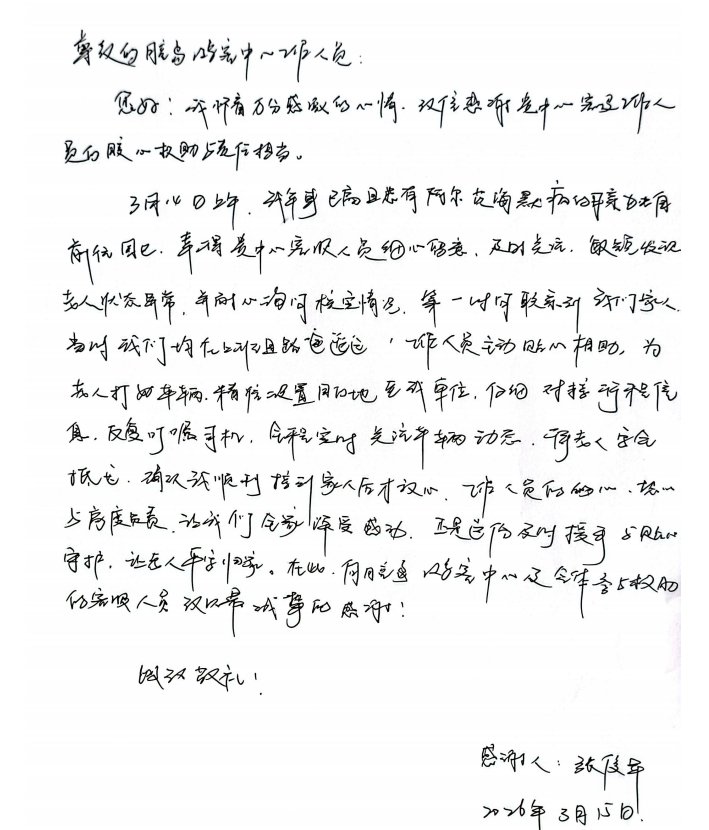 尊敬的胶岛访客中心工作人员:
您好!我怀着万分感激的心情,致信感谢贵中心客服工作人
员的暖心救助与责任担当。
3月14日上午,我年事已高且患有阿尔茨海默病的母亲独自
前往园区,幸得贵中心客服人员细心留意、及时关注,敏锐发现
老人状态异常,并耐心询问核实情况,第一时间联系到我们家人
当时我们均在上班且路途遥远,工作人员主动贴心相助,为
老人打的车辆,精准设置目的地至我单位,仔细对接行程信
息,反复叮嘱司机,全程实时关注车辆动态,待老人安全
抵达,确认我顺利接到家人后才放心。工作人员的细心、耐心
与高度负责,让我们全家深受感动,正是这份及时援手与贴心
守护,让老人平安归家。在此,向胶岛访客中心及全体参与救助
的客服人员致以最诚挚的感谢!
此致敬礼!
感谢人:张俊华
2026年3月15日.